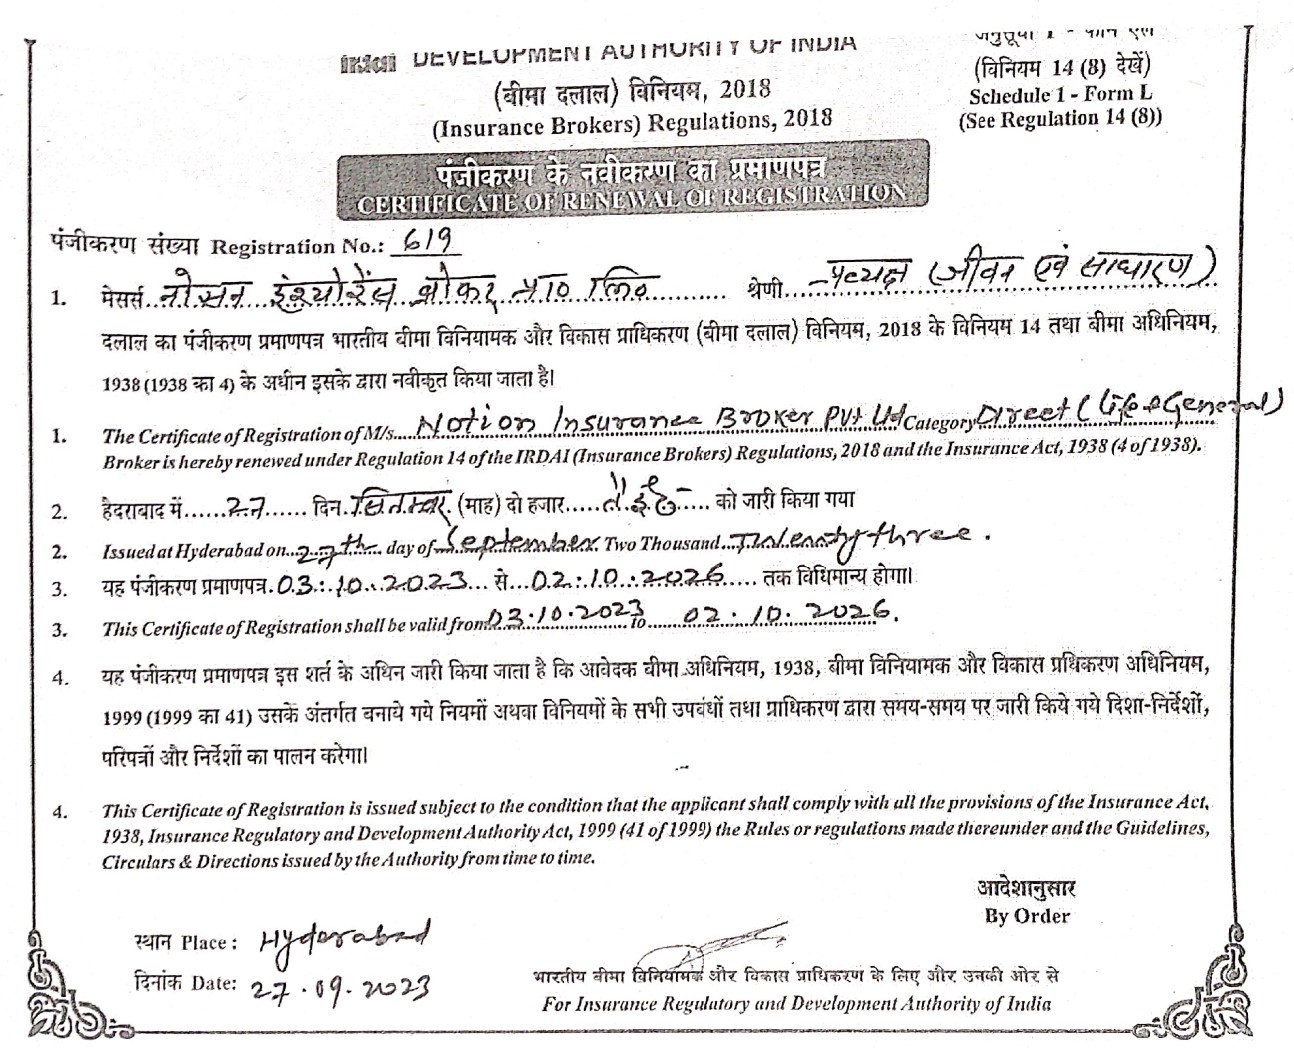 irdai DEVELOPMENT AUTHORITY OF INDIA
अनुसूची 1 - फार्म एल
(विनियम 14 (8) देखें)
Schedule 1 - Form L
(See Regulation 14 (8))
(बीमा दलाल) विनियम, 2018
(Insurance Brokers) Regulations, 2018
पंजीकरण के नवीकरण का प्रमाणपत्र
CERTIFICATE OF RENEWAL OF REGISTRATION
पंजीकरण संख्या Registration No.: 619
1. मेसर्स नोशन इंश्योरेंस ब्रोकर प्रा० लि० श्रेणी प्रत्यक्ष (जीवन एवं साधारण)
दलाल का पंजीकरण प्रमाणपत्र भारतीय बीमा विनियामक और विकास प्राधिकरण (बीमा दलाल) विनियम, 2018 के विनियम 14 तथा बीमा अधिनियम,
1938 (1938 का 4) के अधीन इसके द्वारा नवीकृत किया जाता है।
1. The Certificate of Registration of M/s. Notion Insurance Broker Pvt Ltd Category Direct (Life & General)
Broker is hereby renewed under Regulation 14 of the IRDAI (Insurance Brokers) Regulations, 2018 and the Insurance Act, 1938 (4 of 1938).
2. हैदराबाद में......27...... दिन. सितम्बर. (माह) दो हजार.....तेईस..... को जारी किया गया
2. Issued at Hyderabad on...27th... day of September Two Thousand Twenty three.
3. यह पंजीकरण प्रमाणपत्र. 03.10.2023... से... 02.10.2026..... तक विधिमान्य होगा।
3. This Certificate of Registration shall be valid from 03.10.2023 to 02.10.2026.
4. यह पंजीकरण प्रमाणपत्र इस शर्त के अधिन जारी किया जाता है कि आवेदक बीमा अधिनियम, 1938, बीमा विनियामक और विकास प्रधिकरण अधिनियम,
1999 (1999 का 41) उसके अंतर्गत बनाये गये नियमों अथवा विनियमों के सभी उपबंधों तथा प्राधिकरण द्वारा समय-समय पर जारी किये गये दिशा-निर्देशों,
परिपत्रों और निर्देशों का पालन करेगा।
4. This Certificate of Registration is issued subject to the condition that the applicant shall comply with all the provisions of the Insurance Act,
1938, Insurance Regulatory and Development Authority Act, 1999 (41 of 1999) the Rules or regulations made thereunder and the Guidelines,
Circulars & Directions issued by the Authority from time to time.
आदेशानुसार
By Order
स्थान Place : Hyderabad
दिनांक Date: 27.09.2023
भारतीय बीमा विनियामक और विकास प्राधिकरण के लिए और उनकी ओर से
For Insurance Regulatory and Development Authority of India